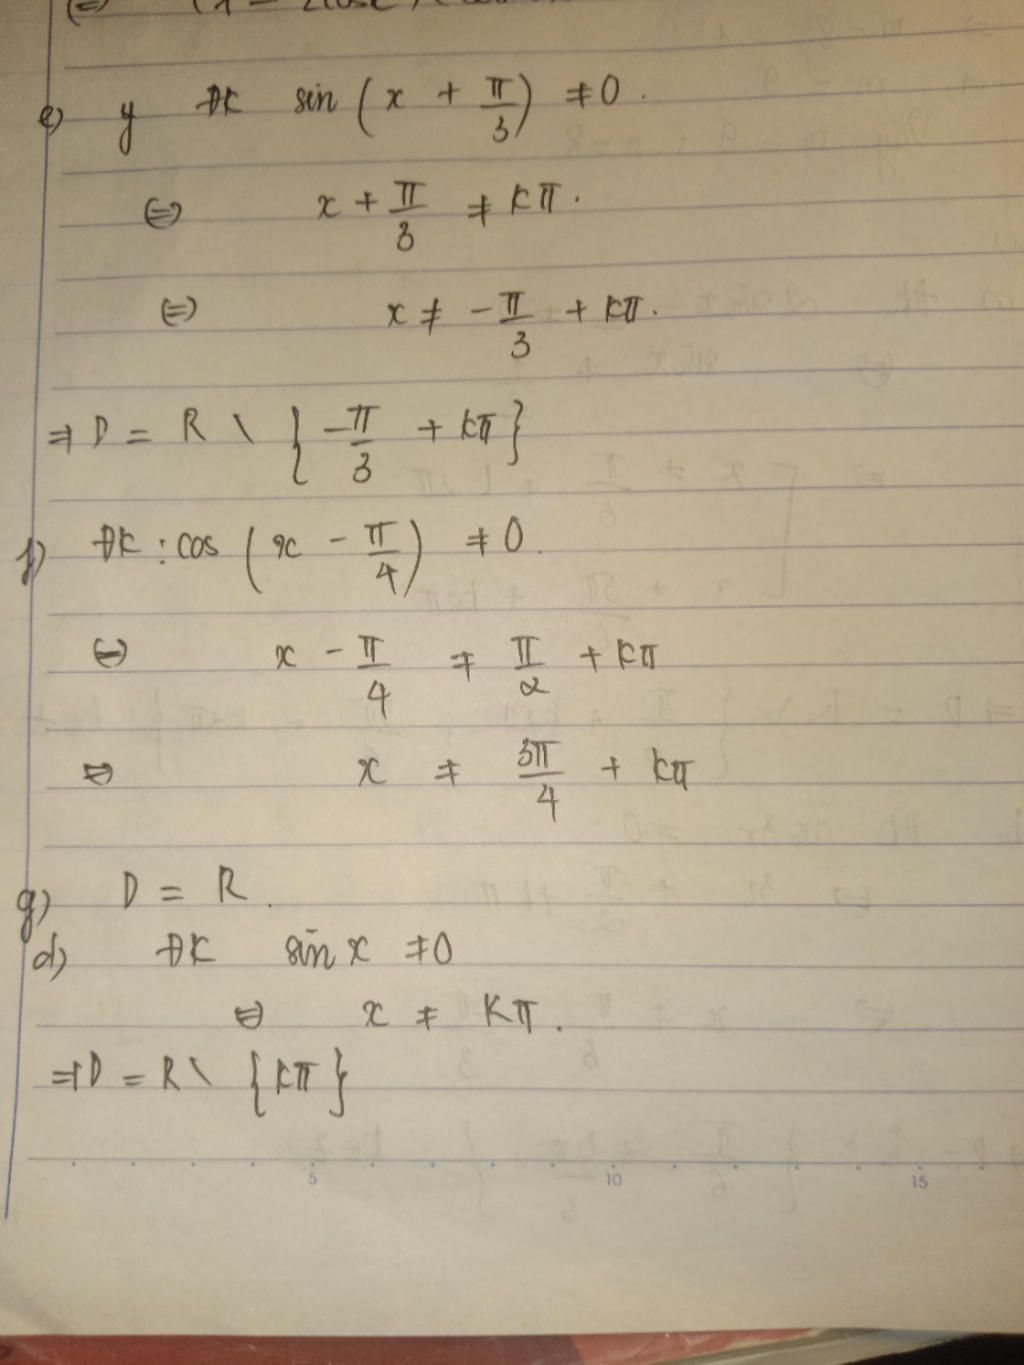 e) y ĐK sin (x + π/3) ≠ 0.
⇔ x + π/3 ≠ kπ.
⇔ x ≠ -π/3 + kπ.
⇒ D = R \ { -π/3 + kπ }
f) ĐK : cos (x - π/4) ≠ 0.
⇔ x - π/4 ≠ π/2 + kπ
⇔ x ≠ 3π/4 + kπ
g) D = R.
d) ĐK sin x ≠ 0
⇔ x ≠ kπ.
⇒ D = R \ { kπ }
5 10 15